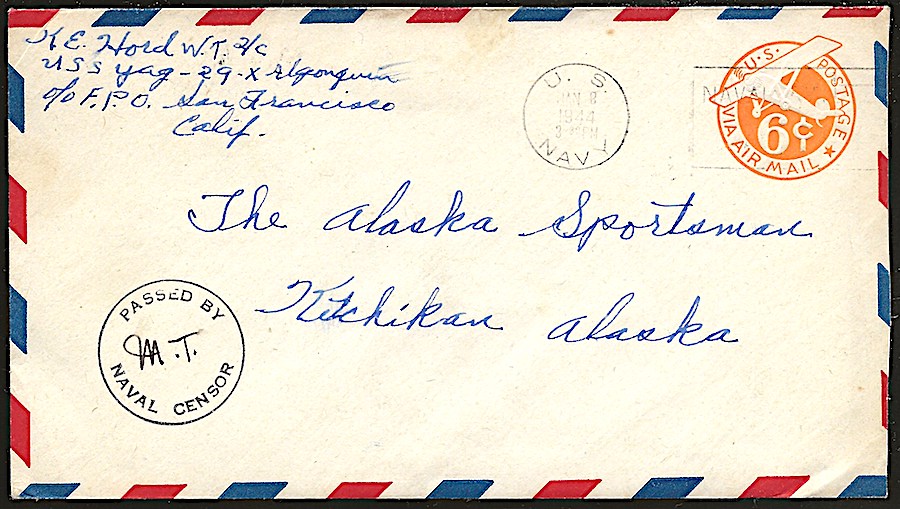 K E. Hord W.T. 2/c
USS Yag-29-X Algonquin
c/o F.P.O. San Francisco
Calif.
U. S.
1944
NAVY
U.S. POSTAGE
6¢
VIA AIR MAIL
The Alaska Sportsman
Kitchikan Alaska
PASSED BY
M.T.
NAVAL CENSOR